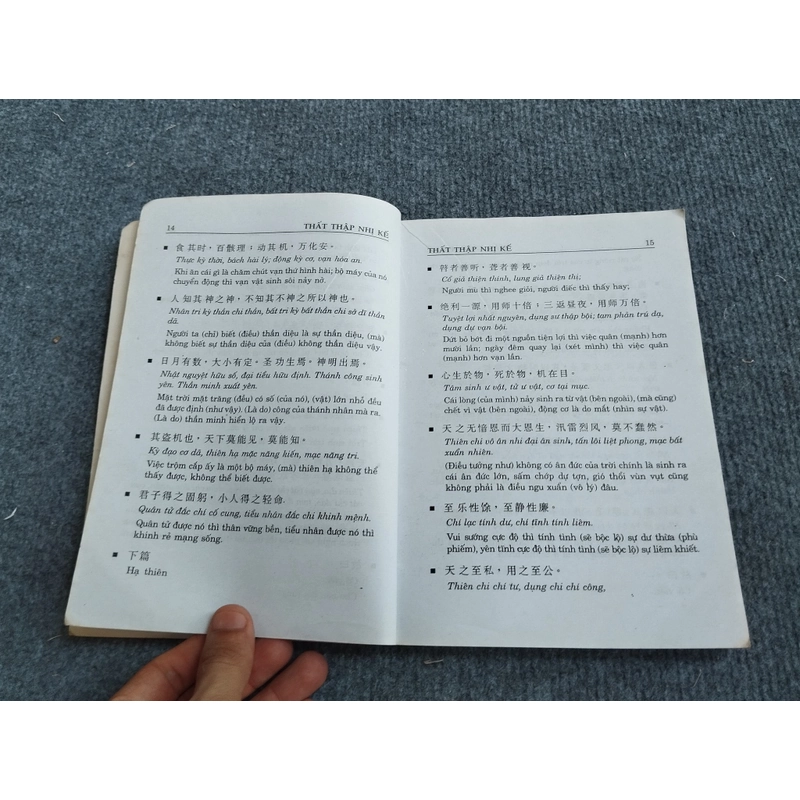 14 THẤT THẬP NHỊ KẾ
■ 食其时，百骸理；动其机，万化安。
Thực kỳ thời, bách hài lý; động kỳ cơ, vạn hóa an.
Khi ăn cái gì là chăm chút vạn thứ hình hài; bộ máy của nó
chuyển động thì vạn vật sinh sôi nảy nở.
■ 人知其神之神，不知其不神之所以神也。
Nhân tri kỳ thần chi thần, bất tri kỳ bất thần chi sở dĩ thần
dã.
Người ta (chỉ) biết (điều) thần diệu là sự thần diệu, (mà)
không biết (điều) không thần diệu là sự không thần diệu vậy.
■ 日月有数，大小有定，圣功生焉。神明出焉。
Nhật nguyệt hữu số, đại tiểu hữu định. Thánh công sinh
yên. Thần minh xuất yên.
Mặt trời mặt trăng (đều) có số (của nó), (vật) lớn nhỏ đều
đã được định (như vậy). (Là do) công của thánh nhân mà ra,
(Là do) thần minh hiển lộ ra vậy.
■ 其盗机也，天下莫能见，莫能知。
Kỳ đạo cơ dã, thiên hạ mặc năng kiến, mạc năng tri.
Việc trộm cắp ấy là một bộ máy, (mà) thiên hạ không thể
thấy được, không thể biết được.
■ 君子得之固躬，小人得之轻命.
Quân tử đắc chi cố cung, tiểu nhân đắc chi khinh mệnh.
Quân tử được nó thì thân vững bền, tiểu nhân được nó thì
khinh rẻ mạng sống.
■ 下篇
Hạ thiên
THẤT THẬP NHỊ KẾ 15
■ 瞽者善听，聋者善视。
Cổ giả thiện thính, lung giả thiện thị;
Người mù thì nghee giỏi, người điếc thì thấy hay;
■ 绝利一源，用师十倍；三返昼夜，用师万倍。
Tuyệt lợi nhất nguyên, dụng sư thập bội; tam phản trú dạ,
dụng dự vạn bội.
Dứt bỏ bớt đi một nguồn tiện lợi thì việc quân (mạnh) hơn
mười lần; ngày đêm quay lại (xét mình) thì việc quân
(mạnh) hơn vạn lần.
■ 心生於物，死於物，机在目。
Tâm sinh ư vật, tử ư vật, cơ tại mục.
Cái lòng (của mình) nảy sinh ra từ vật (bên ngoài), (mà cũng)
chết vì vật (bên ngoài), động cơ là do mắt (nhìn sự vật).
■ 天之无愔恩而大恩生，汛雷烈风，莫不蠢然。
Thiên chi vô ân nhi đại ân sinh, tấn lôi liệt phong, mạc bất
xuẩn nhiên.
(Điều tưởng như) không có ân đức của trời chính là sinh ra
cái ân đức lớn, sấm chớp dự tợn, gió thổi vùn vụt cũng
không phải là điều ngu xuẩn (vô lý) đâu.
■ 至乐性馀，至静性廉。
Chí lạc tính dư, chí tĩnh tính liêm.
Vui sướng cực độ thì tính tình (sẽ bộc lộ) sự dư thừa (phù
phiếm), yên tĩnh cực độ thì tính tình (sẽ bộc lộ) sự liêm khiết.
■ 天之至私，用之至公。
Thiên chi chí tư, dụng chi chí công,